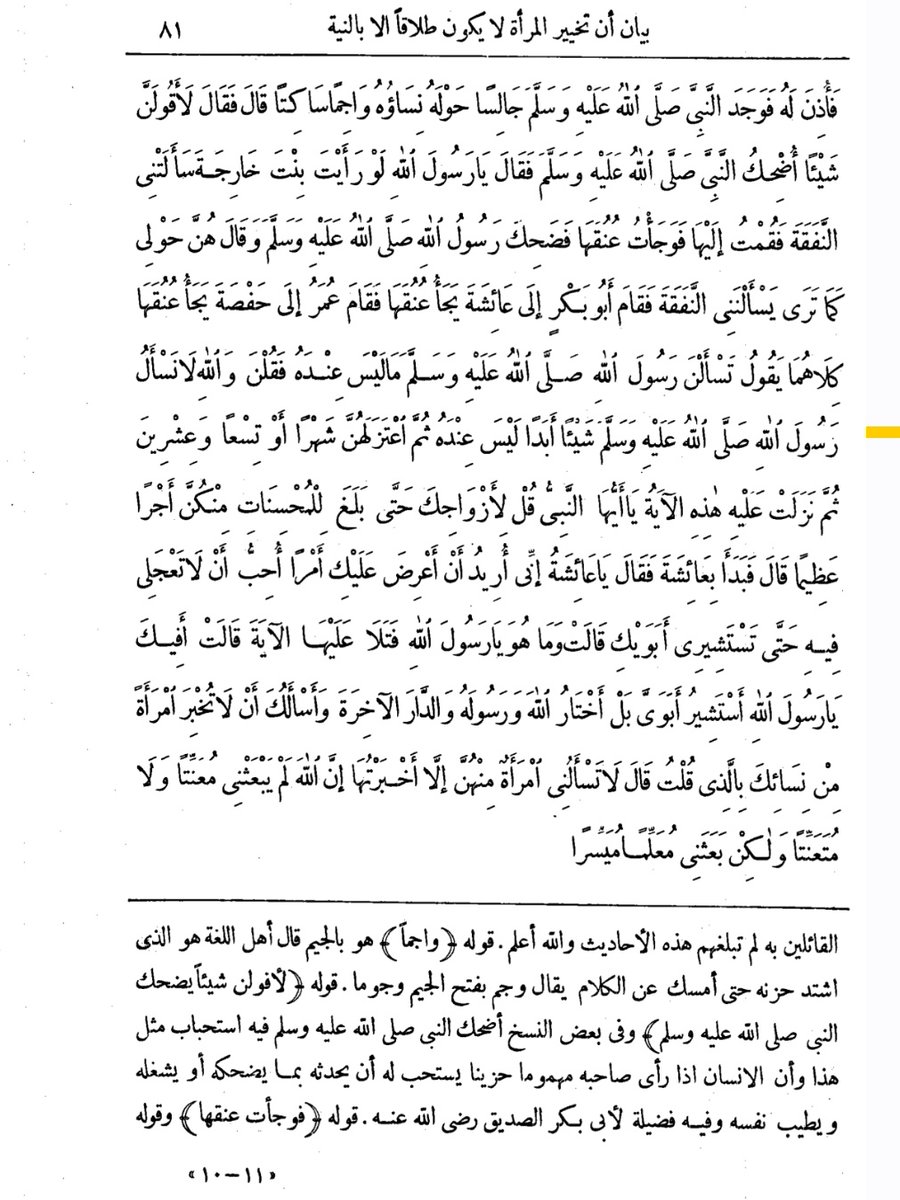 بيان أن تخيير المرأة لا يكون طلاقاً الا بالنية ٨١
فَأُذِنَ لَهُ فَوَجَدَ النَّبِيَّ صَلَّى اللهُ عَلَيْهِ وَسَلَّمَ جَالِسًا حَوْلَهُ نِسَاؤُهُ وَاجِمًا سَاكِتًا قَالَ فَقَالَ لَأَقُولَنَّ
شَيْئًا أُضْحِكُ النَّبِيَّ صَلَّى اللهُ عَلَيْهِ وَسَلَّمَ فَقَالَ يَارَسُولَ اللهِ لَوْ رَأَيْتَ بِنْتَ خَارِجَةَ سَأَلَتْنِي
النَّفَقَةَ فَقُمْتُ إِلَيْهَا فَوَجَأْتُ عُنُقَهَا فَضَحِكَ رَسُولُ اللهِ صَلَّى اللهُ عَلَيْهِ وَسَلَّمَ وَقَالَ هُنَّ حَوْلِي
كَمَا تَرَى يَسْأَلْنَنِي النَّفَقَةَ فَقَامَ أَبُو بَكْرٍ إِلَى عَائِشَةَ يَجَأُ عُنُقَهَا فَقَامَ عُمَرُ إِلَى حَفْصَةَ يَجَأُ عُنُقَهَا
كِلَاهُمَا يَقُولُ تَسْأَلْنَ رَسُولَ اللهِ صَلَّى اللهُ عَلَيْهِ وَسَلَّمَ مَالَيْسَ عِنْدَهُ فَقُلْنَ وَاللهِ لَانَسْأَلُ
رَسُولَ اللهِ صَلَّى اللهُ عَلَيْهِ وَسَلَّمَ شَيْئًا أَبَدًا لَيْسَ عِنْدَهُ ثُمَّ اعْتَزَلَهُنَّ شَهْرًا أَوْ تِسْعًا وَعِشْرِينَ
ثُمَّ نَزَلَتْ عَلَيْهِ هٰذِهِ الآيَةُ يَاأَيُّهَا النَّبِيُّ قُلْ لِأَزْوَاجِكَ حَتَّى بَلَغَ لِلْمُحْسِنَاتِ مِنْكُنَّ أَجْرًا
عَظِيمًا قَالَ فَبَدَأَ بِعَائِشَةَ فَقَالَ يَاعَائِشَةُ إِنِّي أُرِيدُ أَنْ أَعْرِضَ عَلَيْكِ أَمْرًا أُحِبُّ أَنْ لَاتَعْجَلِي
فِيهِ حَتَّى تَسْتَشِيرِي أَبَوَيْكِ قَالَتْ وَمَا هُوَ يَارَسُولَ اللهِ فَتَلَا عَلَيْهَا الآيَةَ قَالَتْ أَفِيكَ
يَارَسُولَ اللهِ أَسْتَشِيرُ أَبَوَيَّ بَلْ أَخْتَارُ اللهَ وَرَسُولَهُ وَالدَّارَ الآخِرَةَ وَأَسْأَلُكَ أَنْ لَاتُخْبِرَ امْرَأَةً
مِنْ نِسَائِكَ بِالَّذِي قُلْتُ قَالَ لَاتَسْأَلُنِي امْرَأَةٌ مِنْهُنَّ إِلَّا أَخْبَرْتُهَا إِنَّ اللهَ لَمْ يَبْعَثْنِي مُعَنِّتًا وَلَا
مُتَعَنِّتًا وَلٰكِنْ بَعَثَنِي مُعَلِّمًا مُيَسِّرًا
القائلين به لم تبلغهم هذه الأحاديث والله أعلم . قوله ﴿واجماً﴾ هو بالجيم قال أهل اللغة هو الذى
اشتد حزنه حتى أمسك عن الكلام يقال وجم بفتح الجيم وجوما . قوله ﴿لأقولن شيئاً يضحك
النبى صلى الله عليه وسلم﴾ وفى بعض النسخ أضحك النبى صلى الله عليه وسلم فيه استحباب مثل
هذا وأن الانسان اذا رأى صاحبه مهموما حزينا يستحب له أن يحدثه بما يضحكه أو يشغله
ويطيب نفسه وفيه فضيلة لأبى بكر الصديق رضى الله عنه . قوله ﴿فوجأت عنقها﴾ وقوله
«١١-١٠»